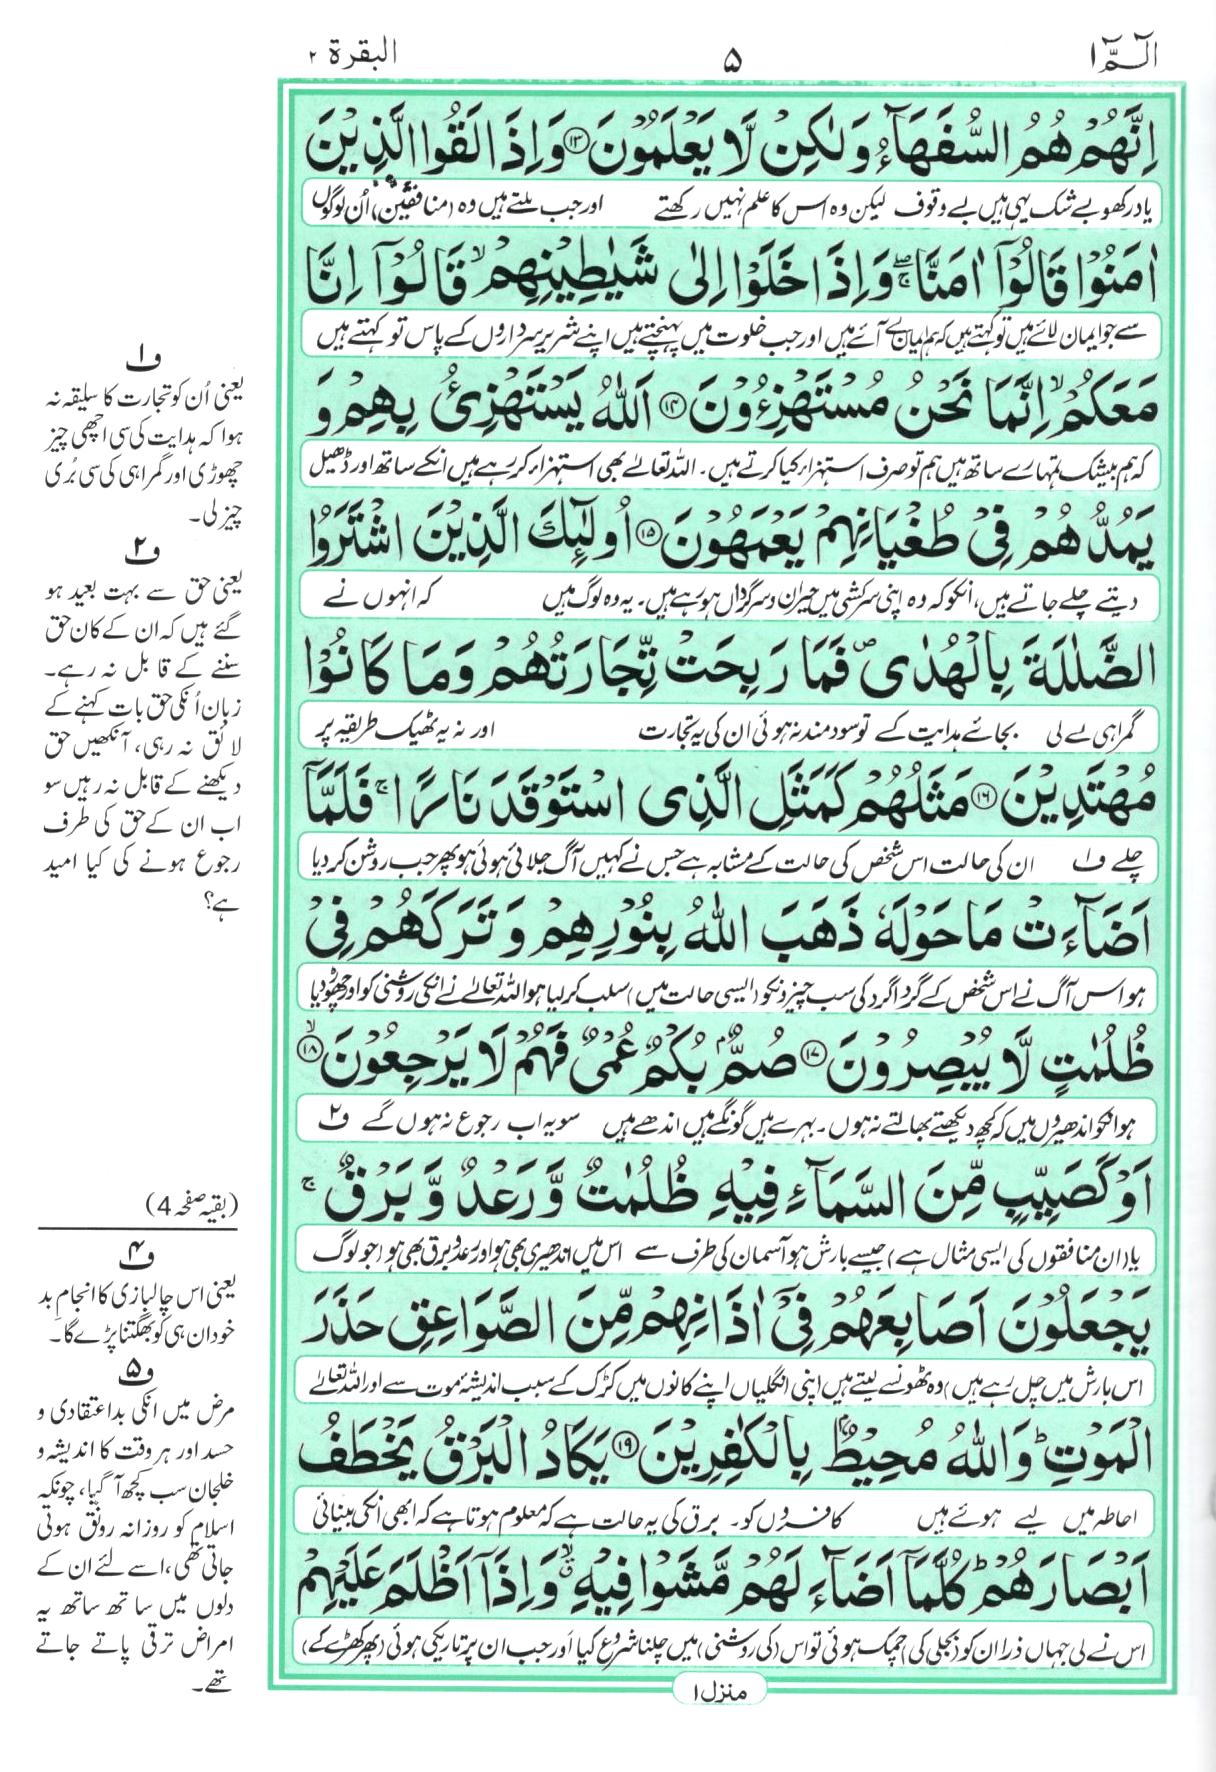 الٓمّٓ ۱
۵
البقرة ۲
اِنَّهُمْ هُمُ السُّفَهَآءُ وَلٰكِنْ لَّا يَعْلَمُوْنَ ﴿۱۳﴾ وَاِذَا لَقُوا الَّذِيْنَ
یاد رکھو بے شک یہی ہیں بے وقوف لیکن وہ اس کا علم نہیں رکھتے اور جب ملتے ہیں وہ (منافقین) اُن لوگوں
اٰمَنُوْا قَالُوْٓا اٰمَنَّا ۖۚ وَاِذَا خَلَوْا اِلٰى شَيٰطِيْنِهِمْ ۙ قَالُوْٓا اِنَّا
سے جو ایمان لائے ہیں تو کہتے ہیں کہ ہم ایمان لے آئے ہیں اور جب خلوت میں پہنچتے ہیں اپنے شریر سرداروں کے پاس تو کہتے ہیں
مَعَكُمْ ۙ اِنَّمَا نَحْنُ مُسْتَهْزِءُوْنَ ﴿۱۴﴾ اَللّٰهُ يَسْتَهْزِئُ بِهِمْ وَ
کہ ہم بیشک تمہارے ساتھ ہیں ہم تو صرف استہزاء کیا کرتے ہیں۔ اللہ تعالےٰ بھی استہزاء کر رہے ہیں انکے ساتھ اور ڈھیل
يَمُدُّهُمْ فِيْ طُغْيَانِهِمْ يَعْمَهُوْنَ ﴿۱۵﴾ اُولٰٓئِكَ الَّذِيْنَ اشْتَرَوُا
دیتے چلے جاتے ہیں، انکو کہ وہ اپنی سرکشی میں حیران و سرگرداں ہو رہے ہیں۔ یہ وہ لوگ ہیں کہ انہوں نے
الضَّلٰلَةَ بِالْهُدٰى ۪ فَمَا رَبِحَتْ تِّجَارَتُهُمْ وَمَا كَانُوْا
گمراہی لے لی بجائے ہدایت کے تو سود مند نہ ہوئی ان کی یہ تجارت اور نہ یہ ٹھیک طریقہ پر
مُهْتَدِيْنَ ﴿۱۶﴾ مَثَلُهُمْ كَمَثَلِ الَّذِى اسْتَوْقَدَ نَارًا ۚ فَلَمَّآ
چلے ف۱ ان کی حالت اس شخص کی حالت کے مشابہ ہے جس نے کہیں آگ جلائی ہوئی ہو پھر جب روشن کر دیا
اَضَآءَتْ مَا حَوْلَهٗ ذَهَبَ اللّٰهُ بِنُوْرِهِمْ وَتَرَكَهُمْ فِيْ
ہو اس آگ نے اس شخص کے گردا گرد کی سب چیزونکو (ایسی حالت میں) سلب کر لیا ہو اللہ تعالےٰ نے انکی روشنی کو اور چھوڑ دیا
ظُلُمٰتٍ لَّا يُبْصِرُوْنَ ﴿۱۷﴾ صُمٌّۢ بُكْمٌ عُمْيٌ فَهُمْ لَا يَرْجِعُوْنَ ۙ﴿۱۸﴾
ہو انکو اندھیروں میں کہ کچھ دیکھتے بھالتے نہ ہوں۔ بہرے ہیں گونگے ہیں اندھے ہیں سو یہ اب رجوع نہ ہوں گے ف۲
اَوْ كَصَيِّبٍ مِّنَ السَّمَآءِ فِيْهِ ظُلُمٰتٌ وَّرَعْدٌ وَّبَرْقٌ ۚ
یا (ان منافقوں کی ایسی مثال ہے) جیسے بارش ہو آسمان کی طرف سے اس میں اندھیری بھی ہو اور رعد و برق بھی ہو (جو لوگ
يَجْعَلُوْنَ اَصَابِعَهُمْ فِيْٓ اٰذَانِهِمْ مِّنَ الصَّوَاعِقِ حَذَرَ
اس بارش میں چل رہے ہیں) وہ ٹھونسے لیتے ہیں اپنی انگلیاں اپنے کانوں میں کڑک کے سبب اندیشۂ موت سے اور اللہ تعالےٰ
الْمَوْتِ ؕ وَاللّٰهُ مُحِيْطٌۢ بِالْكٰفِرِيْنَ ﴿۱۹﴾ يَكَادُ الْبَرْقُ يَخْطَفُ
احاطہ میں لیے ہوئے ہیں کافروں کو۔ برق کی یہ حالت ہے کہ معلوم ہوتا ہے کہ ابھی انکی بینائی
اَبْصَارَهُمْ ؕ كُلَّمَآ اَضَآءَ لَهُمْ مَّشَوْا فِيْهِ ۙۗ وَاِذَآ اَظْلَمَ عَلَيْهِمْ
اس نے لی جہاں ذرا ان کو (بجلی کی) چمک ہوئی تو اس (کی روشنی) میں چلنا شروع کیا اور جب ان پر تاریکی ہوئی (پھر کھڑے کے)
منزل ۱
ف۱
یعنی اُن کو تجارت کا سلیقہ نہ
ہوا کہ ہدایت کی سی اچھی چیز
چھوڑی اور گمراہی کی سی بُری
چیز لی۔
ف۲
یعنی حق سے بہت بعید ہو
گئے ہیں کہ ان کے کان حق
سننے کے قابل نہ رہے۔
زبان اُنکی حق بات کہنے کے
لائق نہ رہی، آنکھیں حق
دیکھنے کے قابل نہ رہیں سو
اب ان کے حق کی طرف
رجوع ہونے کی کیا امید
ہے؟
(بقیہ صفحہ 4)
ف۴
یعنی اس چالبازی کا انجامِ بد
خود ان ہی کو بھگتنا پڑے گا۔
ف۵
مرض میں انکی بداعتقادی و
حسد اور ہر وقت کا اندیشہ و
خلجان سب کچھ آ گیا، چونکہ
اسلام کو روزانہ رونق ہوتی
جاتی تھی، اسلئے ان کے
دلوں میں ساتھ ساتھ یہ
امراض ترقی پاتے جاتے
تھے۔